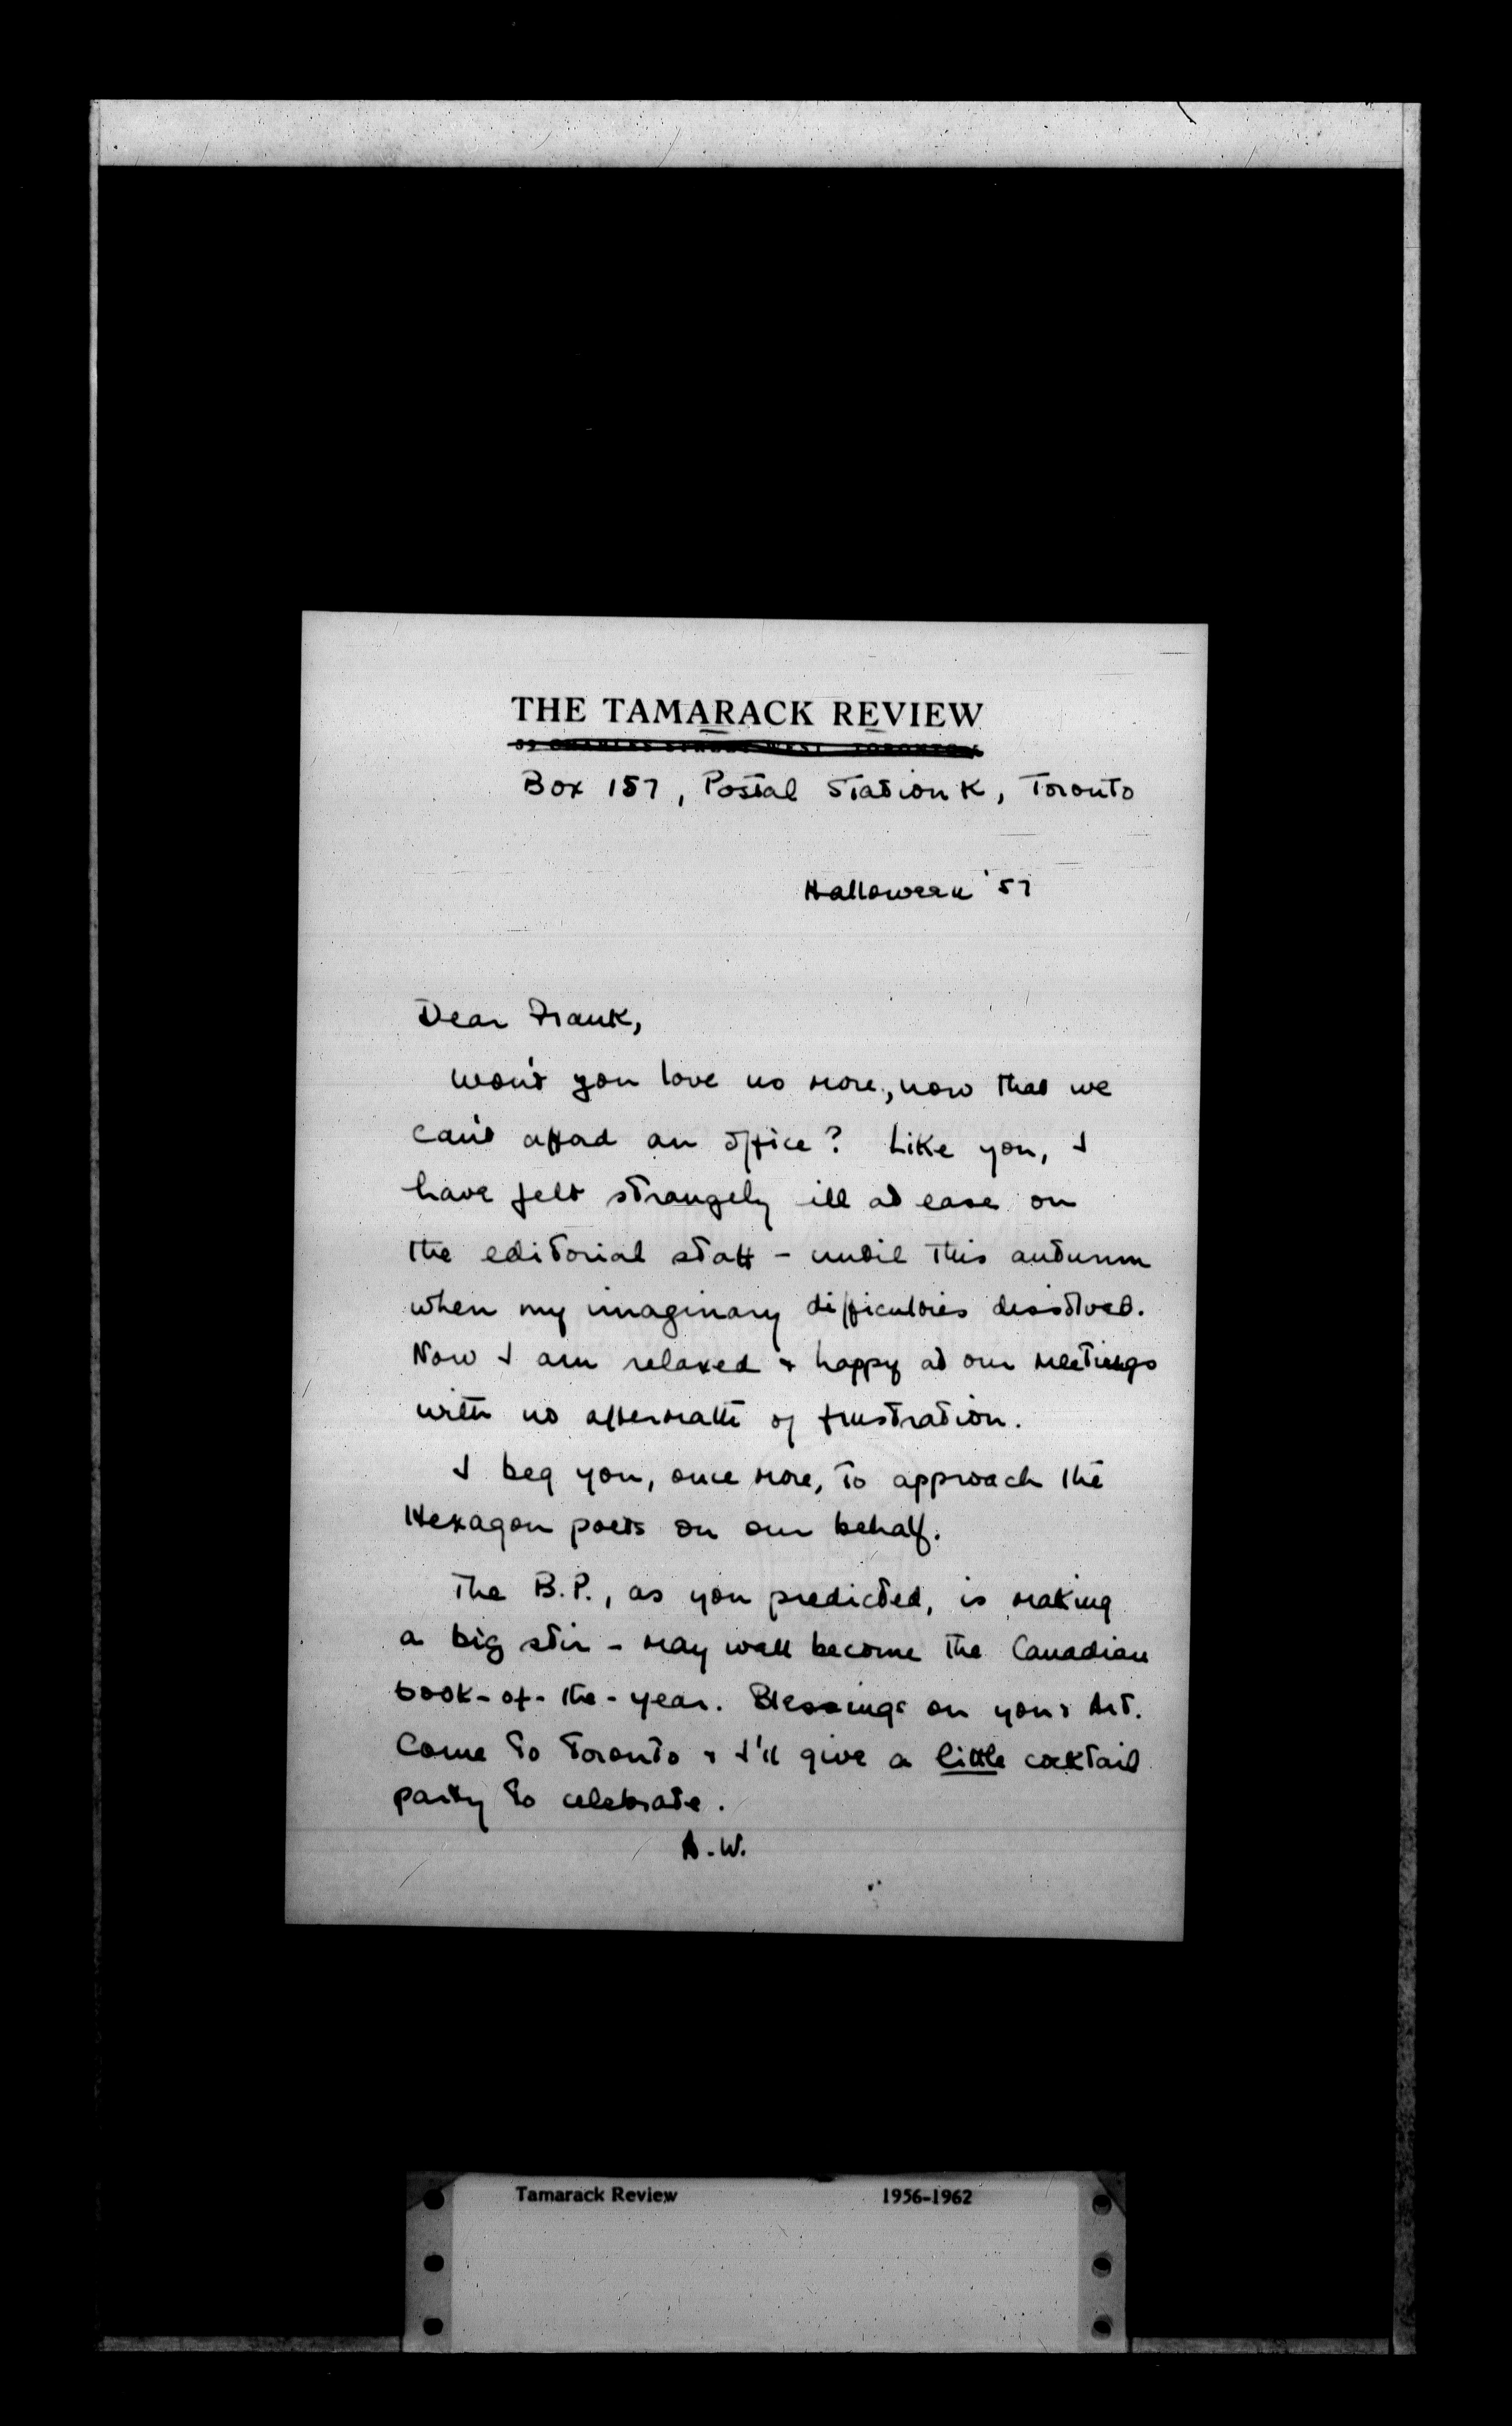 THE TAMARACK REVIEW
Box 157, Postal Station K, Toronto
Halloween '57
Dear Frank,
Won't you love us more, now that we
can't afford an office? Like you, I
have felt strangely ill at ease on
the editorial staff - until this autumn
when my imaginary difficulties dissolved.
Now I am relaxed & happy at our meetings
with no aftermath of frustration.
I beg you, once more, to approach the
Hexagon poets on our behalf.
The B.P., as you predicted, is making
a big stir - may well become the Canadian
book-of-the-year. Blessings on your Art.
Come to Toronto & I'll give a little cocktail
party to celebrate.
A.W.
Tamarack Review 1956-1962